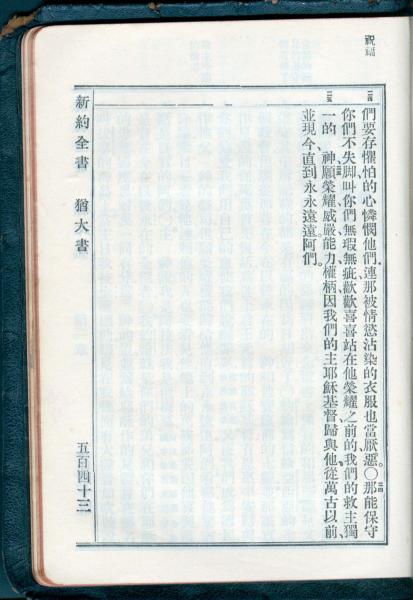 祝福
們要存懼怕的心憐憫他們、連那被情慾沾染的衣服也當厭惡。○那能保守
你們不失脚、叫你們無瑕無疵、歡歡喜喜站在他榮耀之前的我們的救主獨
一的、神願榮耀威嚴能力權柄因我們的主耶穌基督歸與他、從萬古以前、
並現今、直到永永遠遠。阿們。
新約全書 猶大書
五百四十三